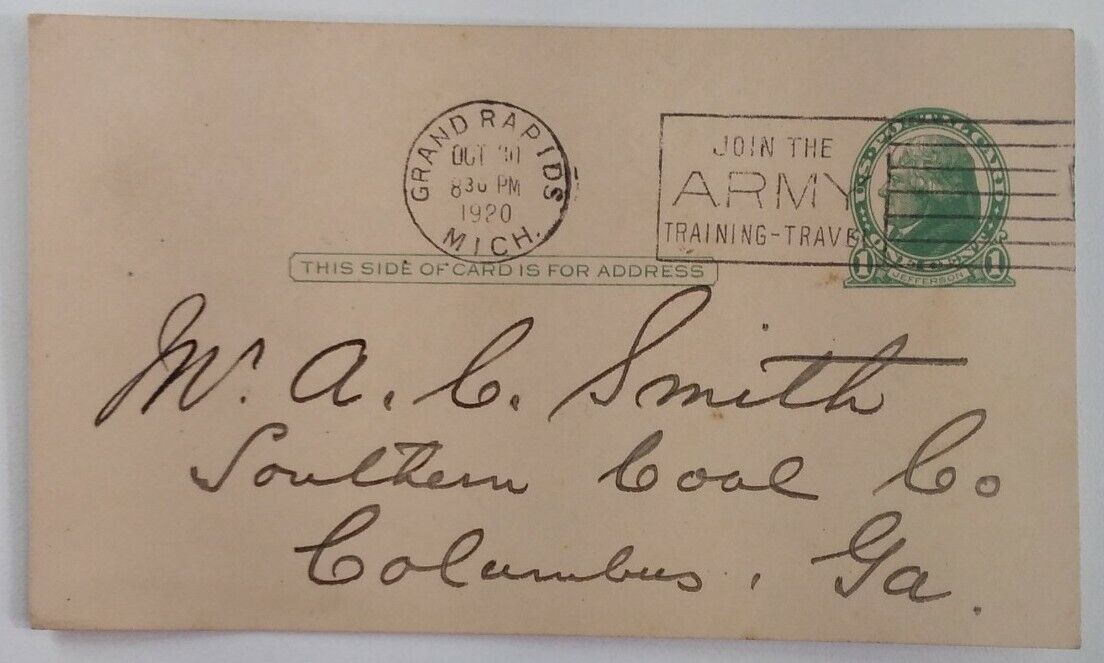 GRAND RAPIDS
OCT
830 PM
1920
MICH.
JOIN THE
ARMY
TRAINING-TRAVE
JEFFERSON
1 1
THIS SIDE OF CARD IS FOR ADDRESS
Mr. A. C. Smith
Southern Coal Co
Columbus, Ga.